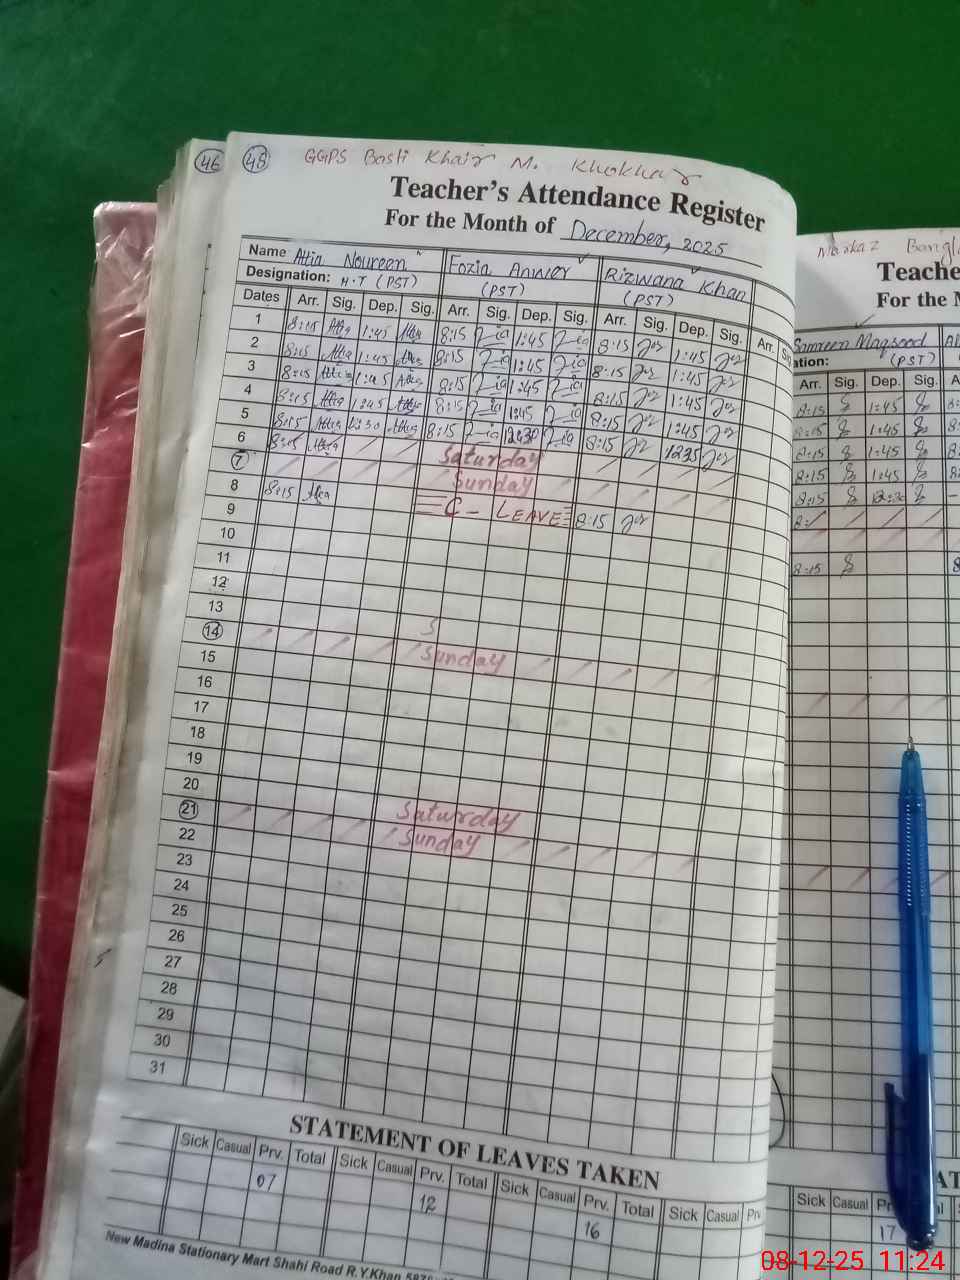 46 48 GGPS Basti Khair M. Khokhar
Teacher's Attendance Register
For the Month of December, 2025
Name Attia Noureen Fozia Anwer Rizwana Khan
Designation: H.T (PST) (PST) (PST)
Dates Arr. Sig. Dep. Sig. Arr. Sig. Dep. Sig. Arr. Sig. Dep. Sig. Arr.
1 8:15 Attia 1:45 Attia 8:15 1:45 8:15 1:45
2 8:15 Attia 1:45 Attia 8:15 1:45 8:15 1:45
3 8:15 Attia 1:45 Attia 8:15 1:45 8:15 1:45
4 8:15 Attia 1:45 Attia 8:15 1:45 8:15 1:45
5 8:15 Attia 12:30 Attia 8:15 12:30 8:15 1235
6 8:15 Attia Saturday
7 Sunday
8 8:15 Attia C - LEAVE 8:15
9
10
11
12
13
14 S
15 Sunday
16
17
18
19
20
21 Saturday
22 Sunday
23
24
25
26
27
28
29
30
31
STATEMENT OF LEAVES TAKEN
Sick Casual Prv. Total Sick Casual Prv. Total Sick Casual Prv. Total Sick Casual Prv
07 12 16
New Madina Stationary Mart Shahi Road R.Y.Khan
Markaz
Teache
For the M
Sameen Maqsood
ation: (PST)
Arr. Sig. Dep. Sig. A
8:15 1:45 8:
8:15 1:45 8:
8:15 1:45 8:
8:15 1:45
8:15 12:30
8:
8:15 8
AT
Sick Casual
17
08-12-25 11:24